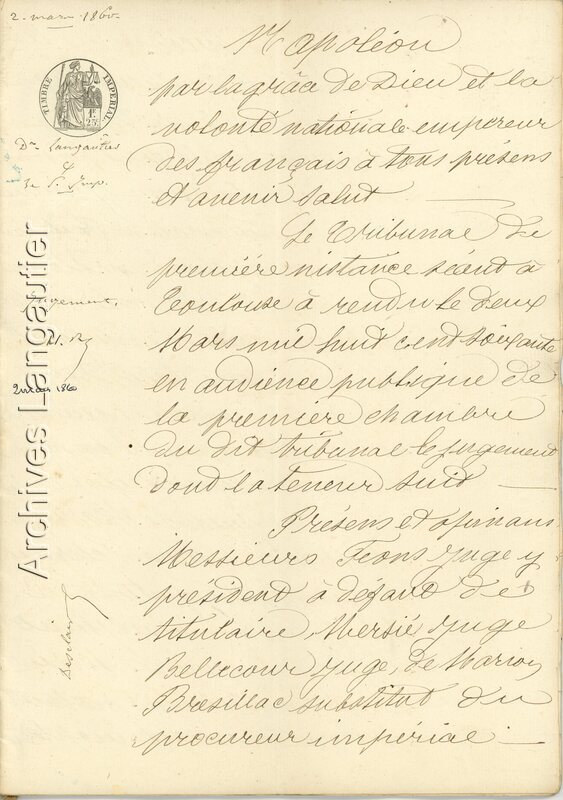 2. mars 1860.
TIMBRE IMPERIAL
1F.
25c
Dr. Langautier
3e
Jugement,
2 mars 1860
Archives Langautier
Napoléon
par la grâce de Dieu et la
volonté nationale empereur
des français à tous présens
et avenir salut
Le Tribunal de
première instance séant à
Toulouse à rendu le deux
Mars mil huit cent soixante
en audience publique de
la première chambre
du dit tribunal le jugement
dont la teneur suit
Présens et opinans
Messieurs Fеons juge y
président à défaut de
titulaire Mersié juge
Bellecour juge, de Marion
Brésillac substitut du
procureur impérial.